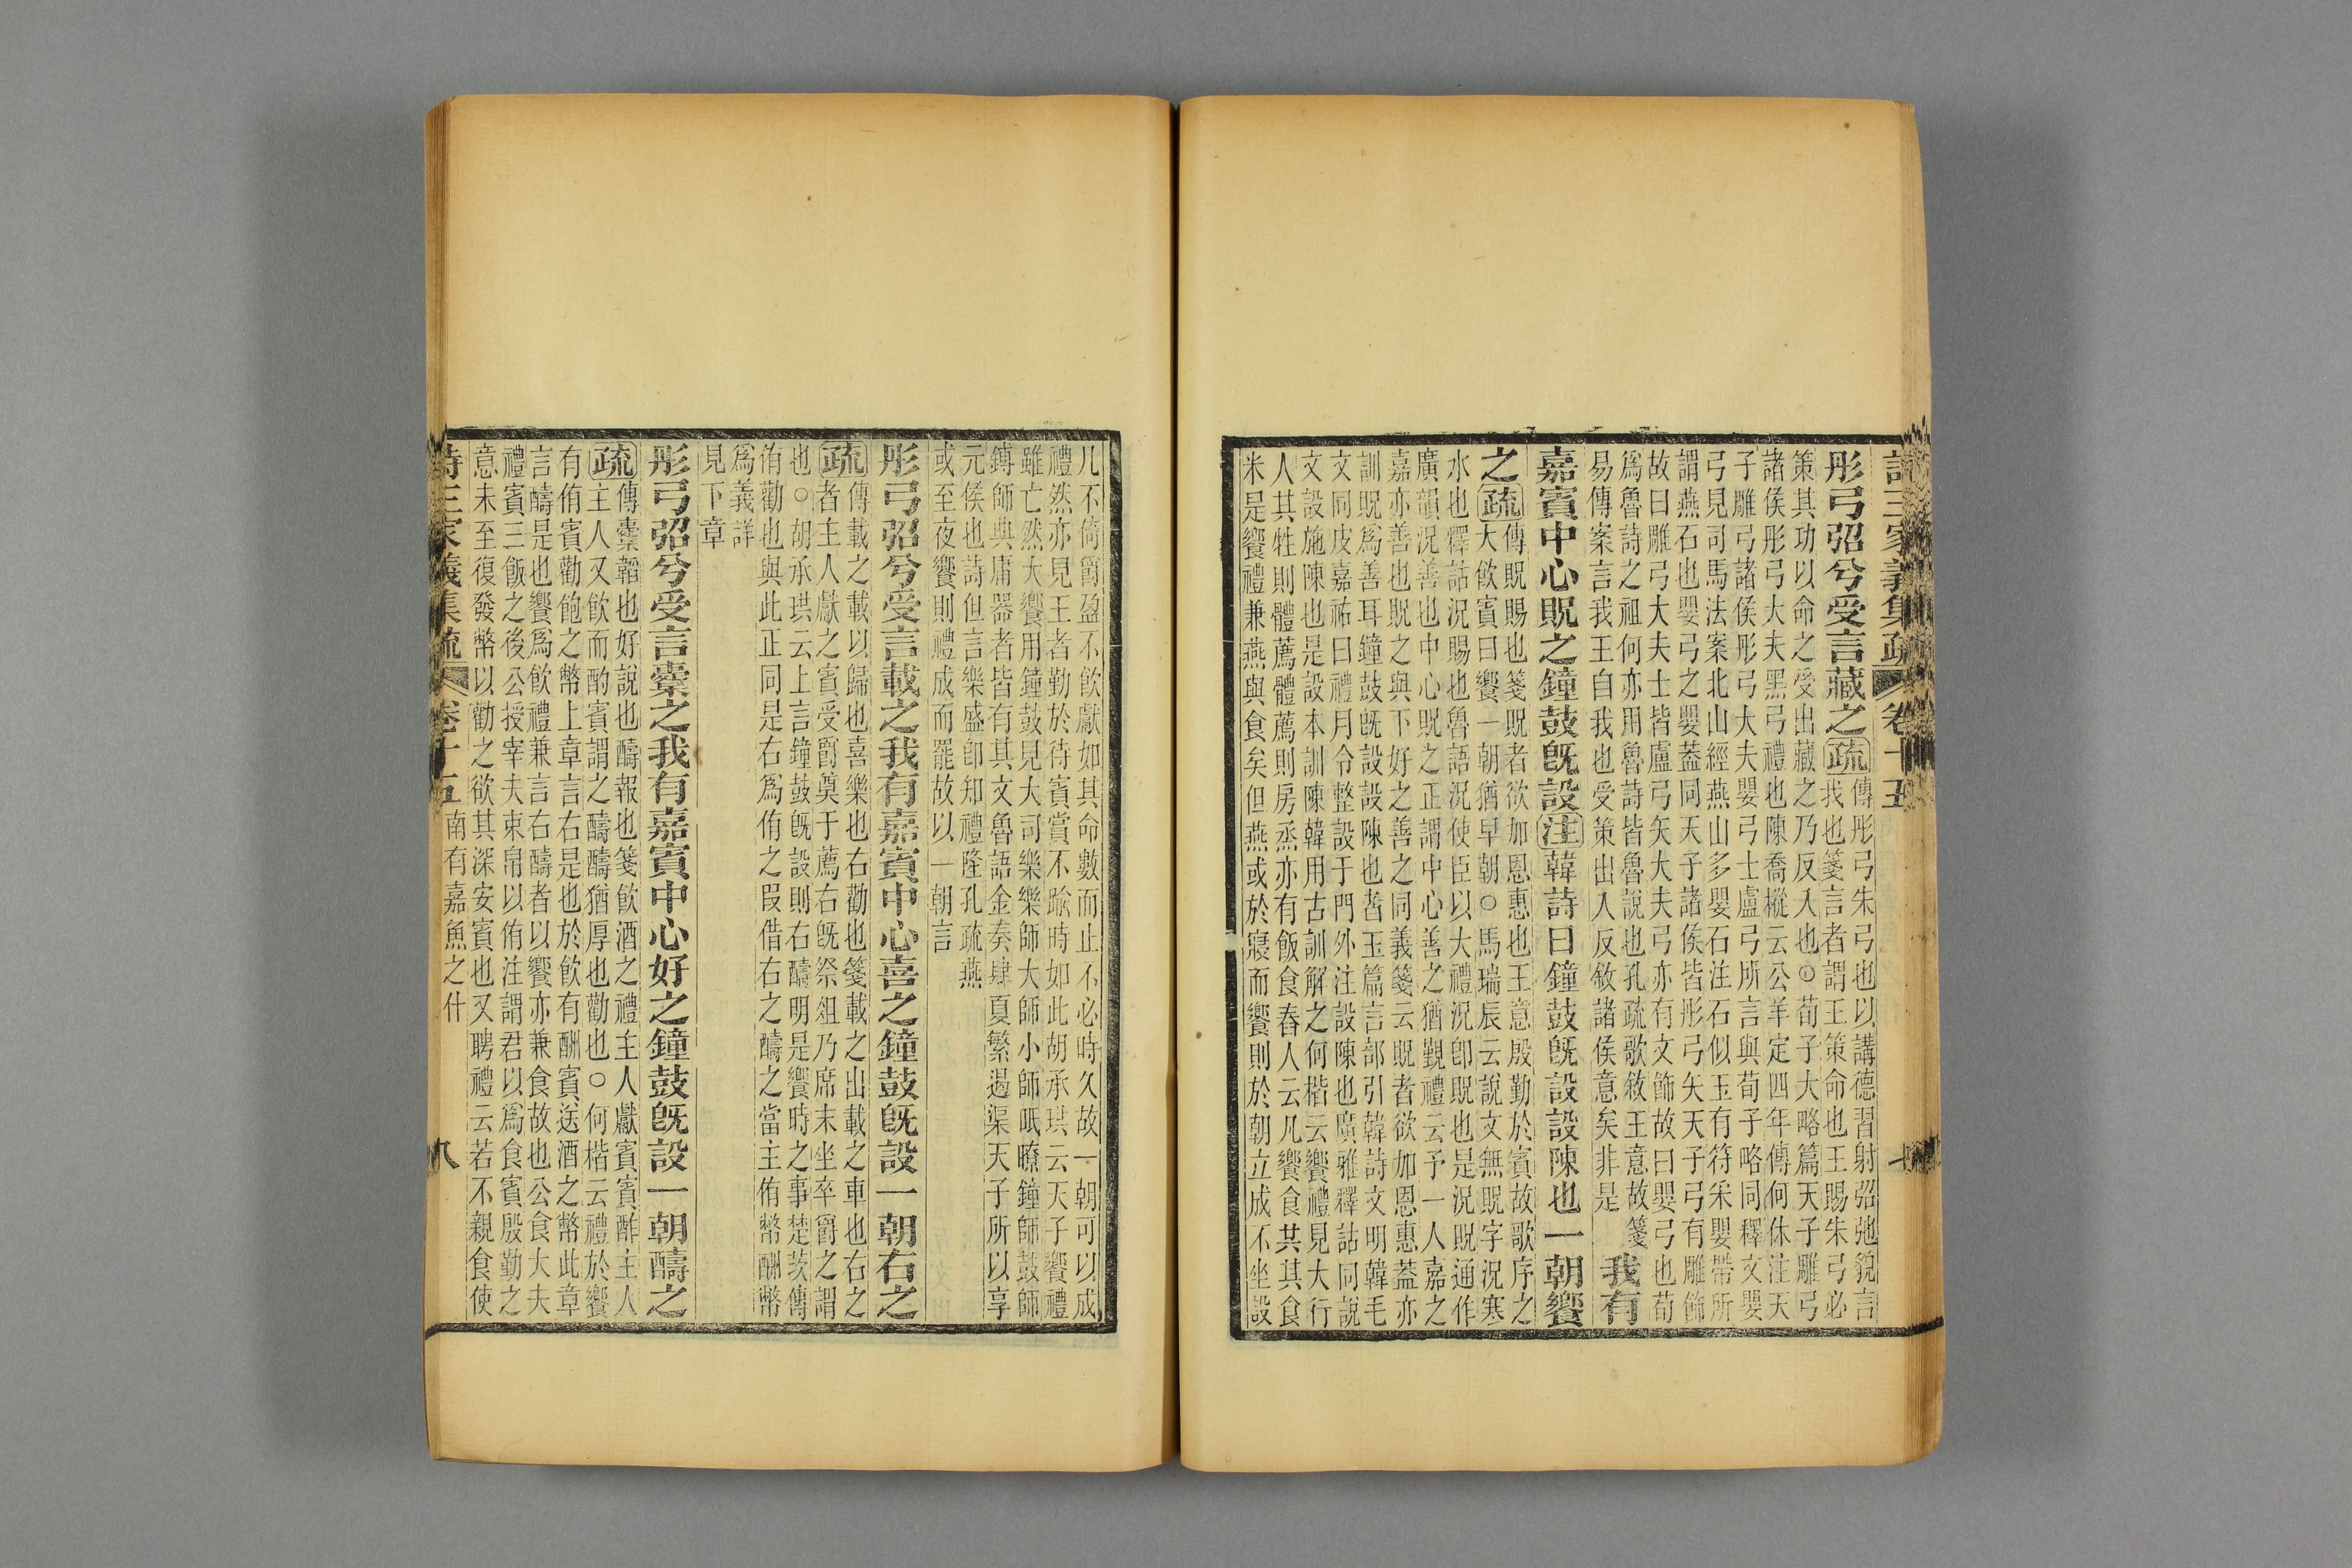 詩三家義集疏 卷十五
彤弓弨兮受言藏之疏傳彤弓朱弓也以講德習射弨弛貌言
我也箋言者謂王策命也王賜朱弓必
策其功以命之受出藏之乃反入也○荀子大略篇天子雕弓
諸侯彤弓大夫黑弓禮也陳喬樅云公羊定四年傳何休注天
子雕弓諸侯彤弓大夫嬰弓士盧弓所言與荀子略同釋文嬰
弓見司馬法案北山經燕山多嬰石注石似玉有符采嬰帶所
謂燕石也嬰弓之嬰葢同天子諸侯皆彤弓矢天子弓有雕飾
故曰雕弓大夫士皆盧弓矢大夫弓亦有文飾故曰嬰弓也荀
爲魯詩之祖何亦用魯詩皆魯說也孔疏歌敘王意故箋
易傳案言我王自我也受策出入反敘諸侯意矣非是
我有
嘉賓中心貺之鐘鼓旣設注韓詩曰鐘鼓旣設設陳也一朝饗
之疏傳貺賜也箋貺者欲加恩惠也王意殷勤於賓故歌序之
大飲賓曰饗一朝猶早朝○馬瑞辰云說文無貺字況寒
水也釋詁況賜也魯語況使臣以大禮況卽貺也是況貺通作
廣韻況善也中心貺之正謂中心善之猶覲禮云予一人嘉之
嘉亦善也貺之與下好之善之同義箋云貺者欲加恩惠葢亦
訓貺爲善耳鐘鼓旣設設陳也者玉篇言部引韓詩文明韓毛
文同皮嘉祐曰禮月令整設于門外注設陳也廣雅釋詁同說
文設施陳也是設本訓陳韓用古訓解之何楷云饗禮見大行
人其牲則體薦體薦則房烝亦有飯食舂人云凡饗食共其食
米是饗禮兼燕與食矣但燕或於寢而饗則於朝立成不坐設
几不倚爵盈不飲獻如其命數而止不必時久故一朝可以成
禮然亦見王者勤於待賓賞不踰時如此胡承珙云天子饗禮
雖亡然大饗用鐘鼓見大司樂樂師大師小師眂瞭鐘師鼓師
鎛師典庸器者皆有其文魯語金奏肆夏繁遏渠天子所以享
元侯也詩但言樂盛卽知禮隆孔疏燕
或至夜饗則禮成而罷故以一朝言
彤弓弨兮受言載之我有嘉賓中心喜之鐘鼓旣設一朝右之
疏傳載之載以歸也喜樂也右勸也箋載之出載之車也右之
者主人獻之賓受爵奠于薦右旣祭俎乃席末坐卒爵之謂
也○胡承珙云上言鐘鼓旣設則右醻明是饗時之事楚茨傳
侑勸也與此正同是右爲侑之叚借右之醻之當主侑幣酬幣
爲義詳
見下章
彤弓弨兮受言櫜之我有嘉賓中心好之鐘鼓旣設一朝醻之
疏傳櫜韜也好說也醻報也箋飲酒之禮主人獻賓賓酢主人
主人又飲而酌賓謂之醻醻猶厚也勸也○何楷云禮於饗
有侑賓勸飽之幣上章言右是也於飲有酬賓送酒之幣此章
言醻是也饗爲飲禮兼言右醻者以饗亦兼食故也公食大夫
禮賓三飯之後公授宰夫束帛以侑注謂君以爲食賓殷勤之
意未至復發幣以勸之欲其深安賓也又聘禮云若不親食使
詩三家義集疏 卷十五 南有嘉魚之什 八